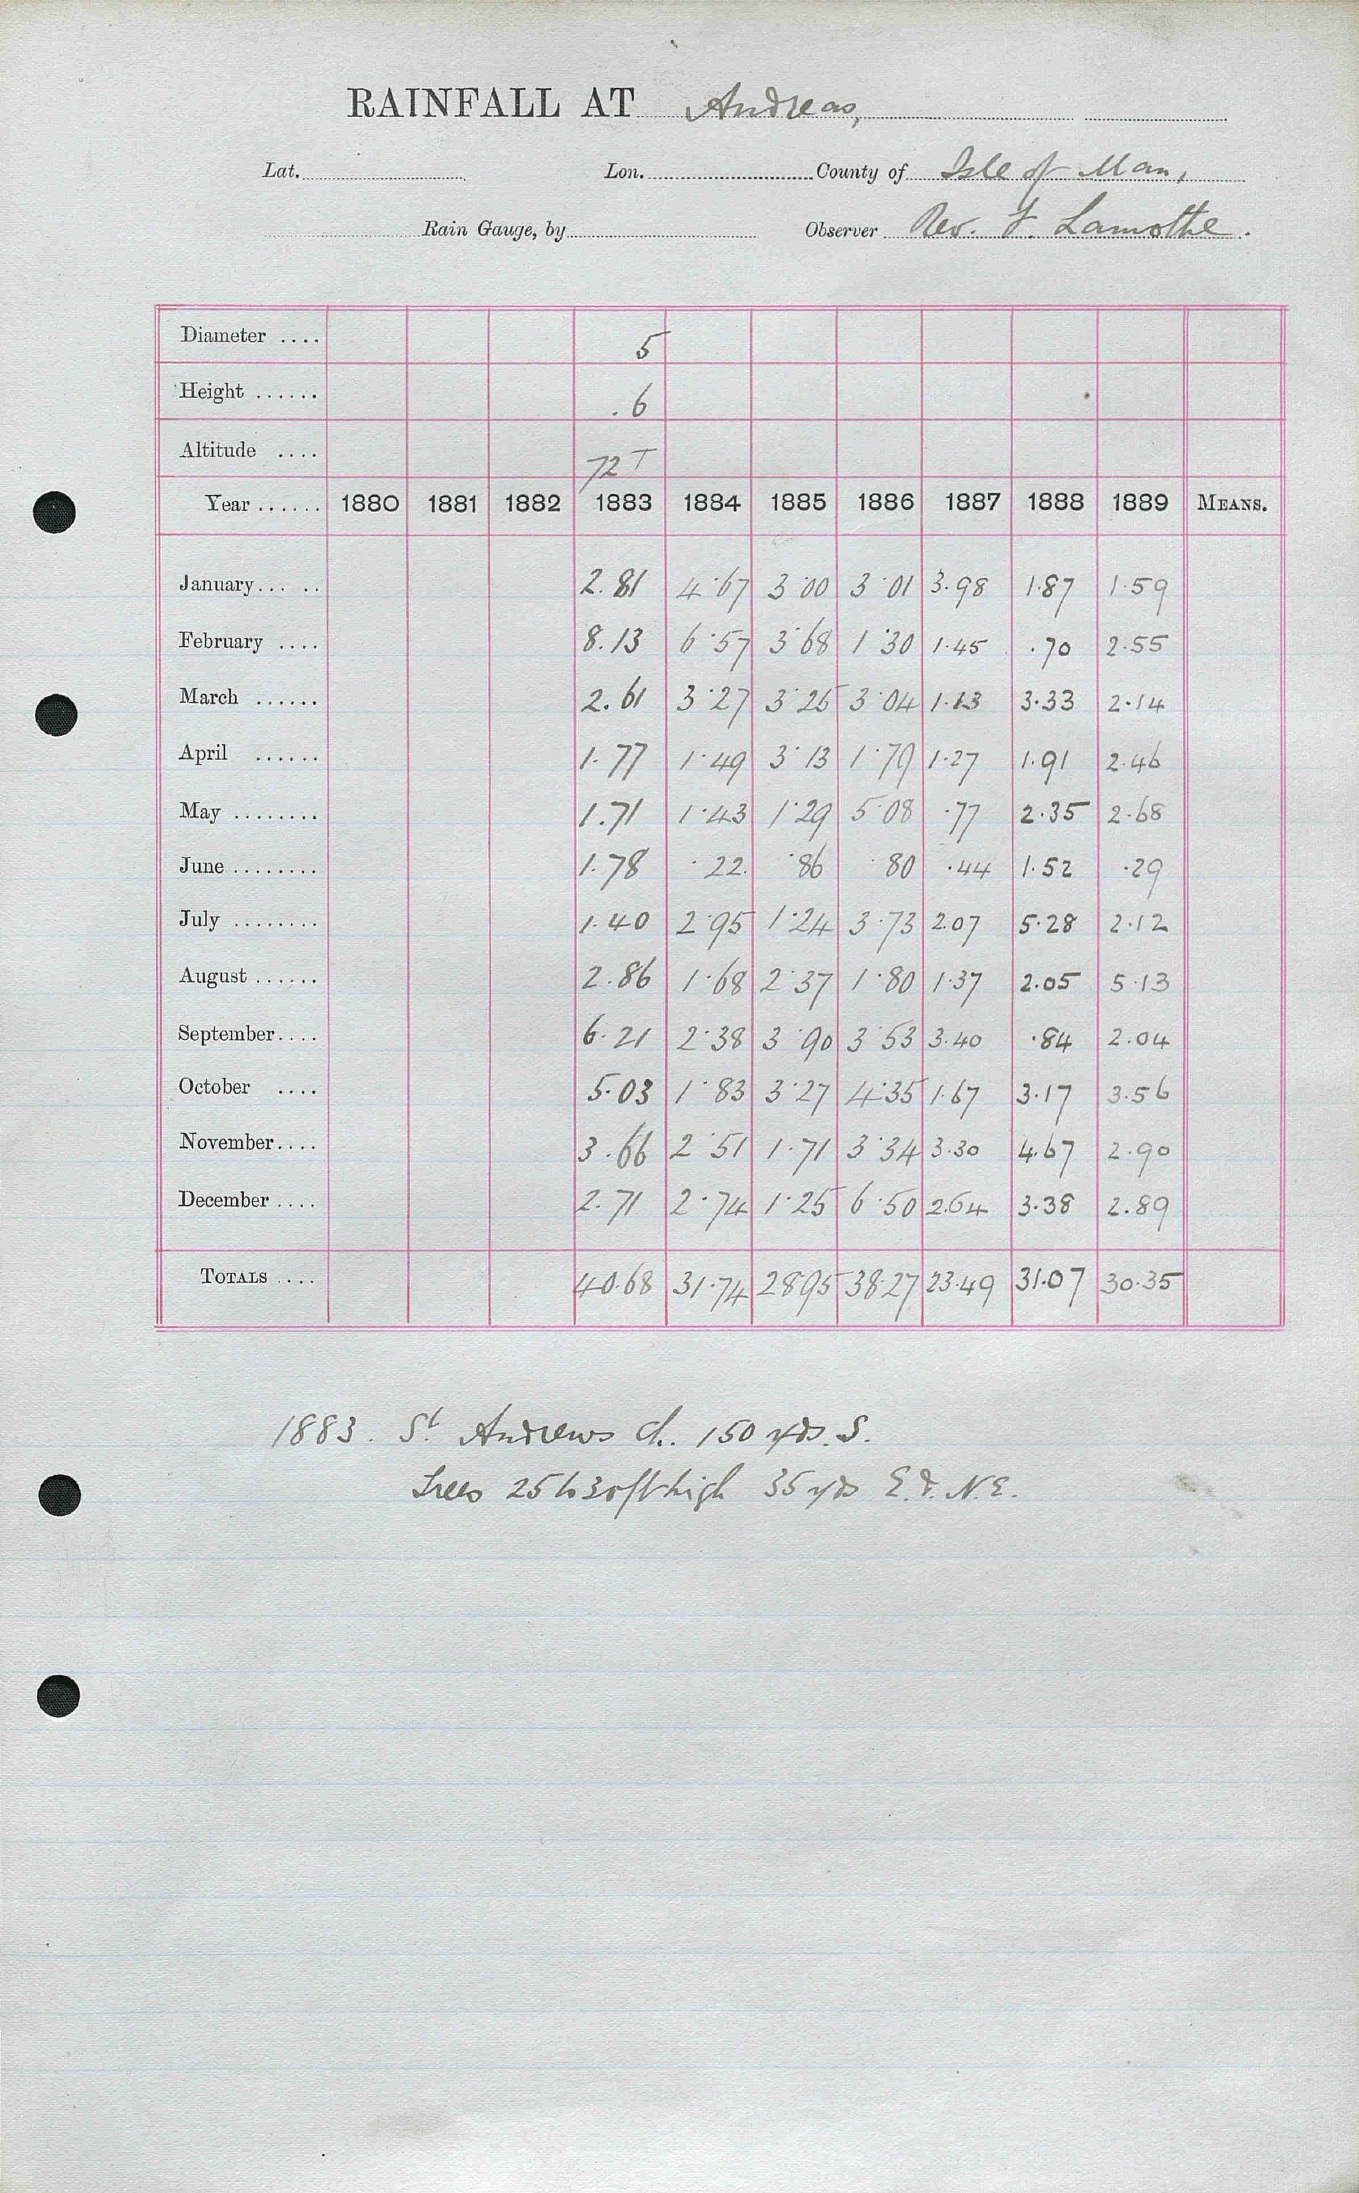 RAINFALL AT Andreas,
Lat. Lon. County of Isle of Man,
Rain Gauge, by Observer Rev. F. Lamothe.
Diameter .... 5
Height ...... .6
Altitude .... 72 T
Year ...... 1880 1881 1882 1883 1884 1885 1886 1887 1888 1889 MEANS.
January... .. 2.81 4.67 3.00 3.01 3.98 1.87 1.59
February .... 8.13 6.57 3.68 1.30 1.45 .70 2.55
March ...... 2.61 3.27 3.25 3.04 1.13 3.33 2.14
April ...... 1.77 1.49 3.13 1.79 1.27 1.91 2.46
May ........ 1.71 1.43 1.29 5.08 .77 2.35 2.68
June ........ 1.78 .22 .86 .80 .44 1.52 .29
July ........ 1.40 2.95 1.24 3.73 2.07 5.28 2.12
August ...... 2.86 1.68 2.37 1.80 1.37 2.05 5.13
September.... 6.21 2.38 3.90 3.53 3.40 .84 2.04
October .... 5.03 1.83 3.27 4.35 1.67 3.17 3.56
November.... 3.66 2.51 1.71 3.34 3.30 4.67 2.90
December .... 2.71 2.74 1.25 6.50 2.64 3.38 2.89
TOTALS .... 40.68 31.74 28.95 38.27 23.49 31.07 30.35
1883. St. Andrews Ch. 150 yds. S.
Trees 25 to 30 ft high 35 yds E. & N.E.